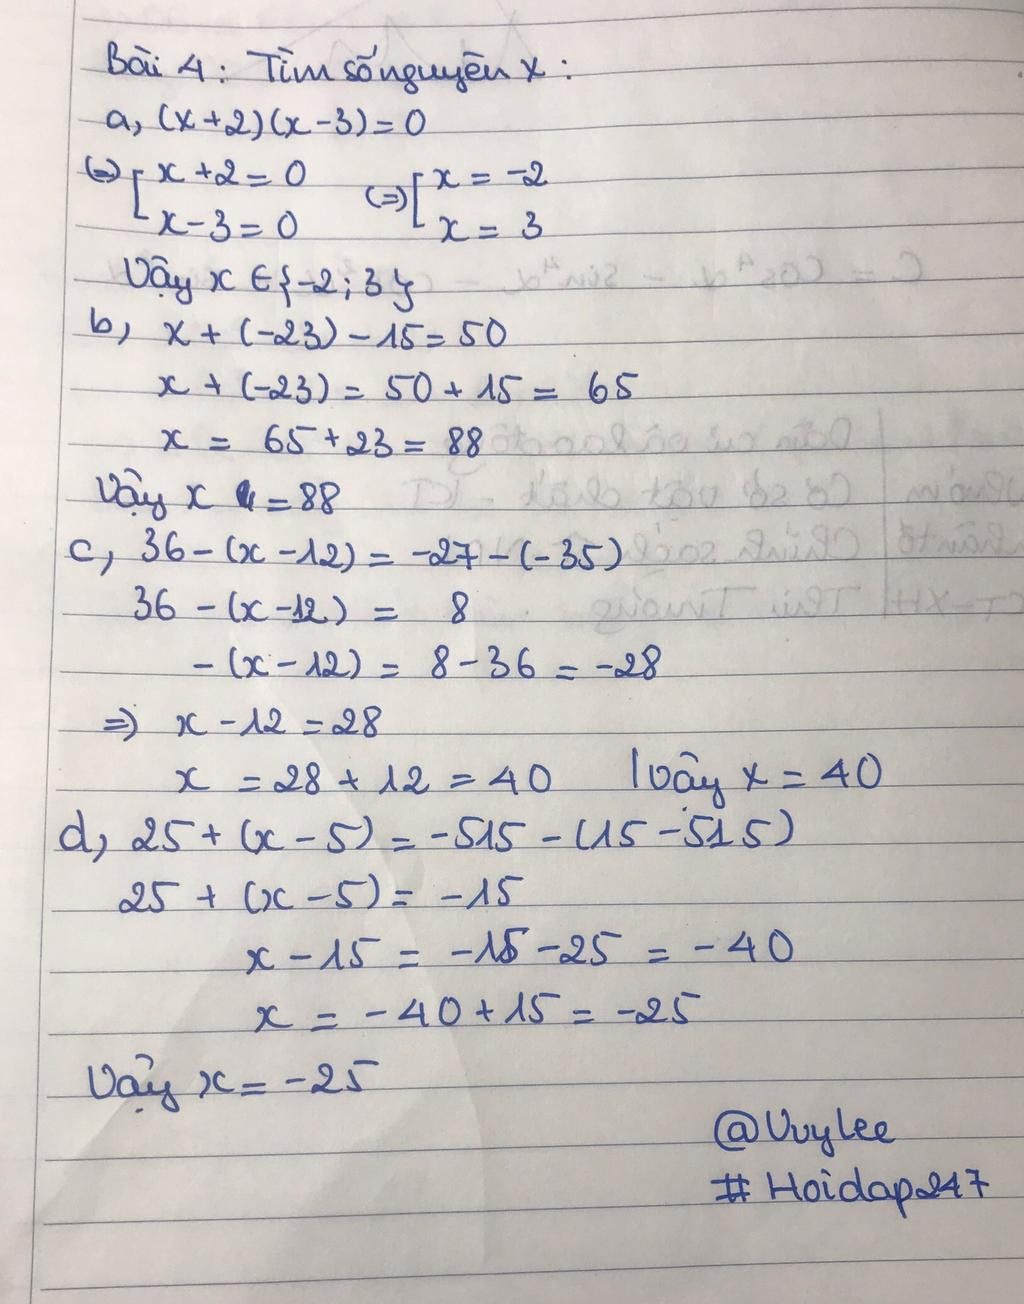 Bài 4: Tìm số nguyên x:
a, (x+2)(x-3)=0
(=) [ x+2=0 (=) [ x = -2
x-3=0 x = 3
Vậy x ∈ {-2; 3}
b, x + (-23) - 15 = 50
x + (-23) = 50 + 15 = 65
x = 65 + 23 = 88
Vậy x = 88
c, 36 - (x - 12) = -27 - (-35)
36 - (x - 12) = 8
- (x - 12) = 8 - 36 = -28
=> x - 12 = 28
x = 28 + 12 = 40 | Vậy x = 40
d, 25 + (x - 5) = -515 - (15 - 515)
25 + (x - 5) = -15
x - 15 = -15 - 25 = -40
x = -40 + 15 = -25
Vậy x = -25
@Vvylee
# Hoidap247